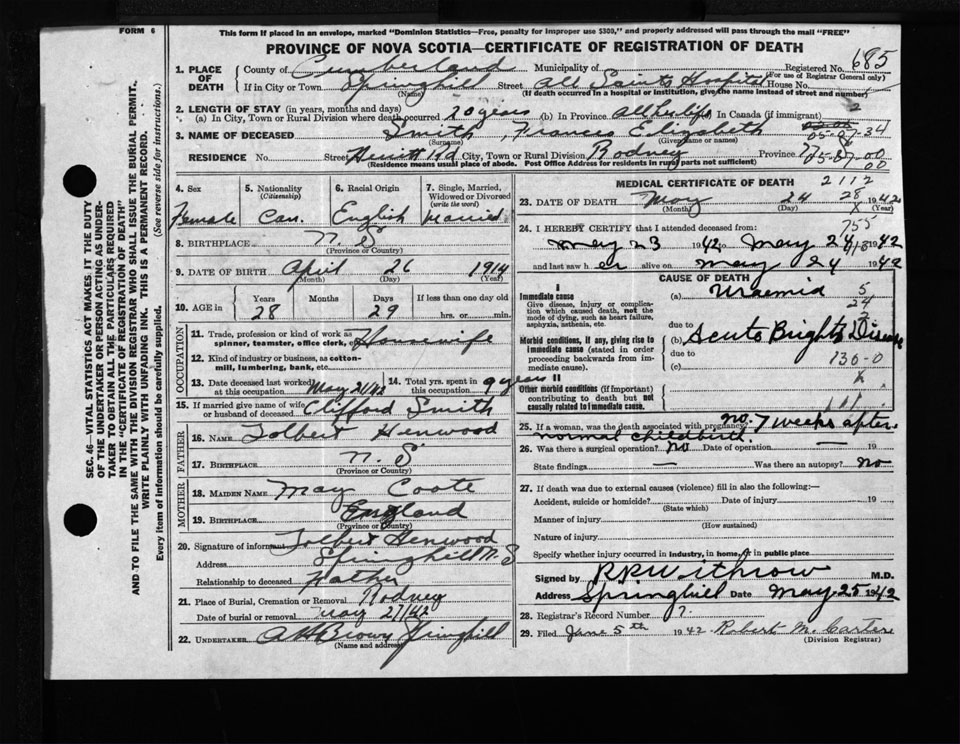 FORM 6
This form if placed in an envelope, marked "Dominion Statistics—Free, penalty for improper use $300," and properly addressed will pass through the mail "FREE"
PROVINCE OF NOVA SCOTIA—CERTIFICATE OF REGISTRATION OF DEATH
SEC. 46—VITAL STATISTICS ACT MAKES IT THE DUTY
OF THE UNDERTAKER OR PERSON ACTING AS UNDER-
TAKER TO OBTAIN ALL THE PARTICULARS REQUIRED
IN THE "CERTIFICATE OF REGISTRATION OF DEATH"
AND TO FILE THE SAME WITH THE DIVISION REGISTRAR WHO SHALL ISSUE THE BURIAL PERMIT.
WRITE PLAINLY WITH UNFADING INK. THIS IS A PERMANENT RECORD.
Every item of information should be carefully supplied. (See reverse side for instructions.)
1. PLACE OF DEATH County of Cumberland Municipality of Registered No. 685
(For use of Registrar General only)
If in City or Town Springhill Street All Saints Hospital House No.
(Name) (If death occurred in a hospital or institution, give the name instead of street and number)
2. LENGTH OF STAY (in years, months and days)
(a) In City, Town or Rural Division where death occurred 20 years (b) In Province All her life In Canada (if immigrant)
3. NAME OF DECEASED Smith, Frances Elizabeth 05-07-34
(Surname) (Given name or names)
RESIDENCE No. Street City, Town or Rural Division Rodney Province
(Residence means usual place of abode. Post Office Address for residents in rural parts not sufficient)
4. Sex Female
5. Nationality (Citizenship) Can.
6. Racial Origin English
7. Single, Married, Widowed or Divorced (write the word) Married
8. BIRTHPLACE N. S
(Province or Country)
9. DATE OF BIRTH April 26 1914
(Month) (Day) (Year)
10. AGE IN Years 28 Months Days 29 If less than one day old hrs. or min.
OCCUPATION
11. Trade, profession or kind of work as spinner, teamster, office clerk, Housewife
12. Kind of industry or business, as cotton-mill, lumbering, bank, etc.
13. Date deceased last worked at this occupation May 21/42 14. Total yrs. spent in this occupation 9 years
15. If married give name of wife or husband of deceased Clifford Smith
FATHER
16. NAME Tolbert Henwood
17. BIRTHPLACE N. S
(Province or Country)
MOTHER
18. MAIDEN NAME May Coote
19. BIRTHPLACE England
(Province or Country)
20. Signature of informant Tolbert Henwood
Address Springhill N. S
Relationship to deceased Father
21. Place of Burial, Cremation or Removal Rodney
Date of burial or removal May 27/42
22. UNDERTAKER Brown Springhill
(Name and address)
MEDICAL CERTIFICATE OF DEATH 2112
23. DATE OF DEATH May 24 1942
(Month) (Day) (Year)
24. I HEREBY CERTIFY that I attended deceased from: 755
May 23 1942 to May 24 1942
and last saw her alive on May 24 1942
CAUSE OF DEATH
I
Immediate cause (a) Uraemia 5
Give disease, injury or complication which caused death, not the mode of dying, such as heart failure, asphyxia, asthenia, etc. 24
due to
Morbid conditions, if any, giving rise to immediate cause (stated in order proceeding backwards from immediate cause). (b) Acute Brights Disease
due to
(c) 130-0
II
Other morbid conditions (if important) contributing to death but not causally related to immediate cause.
25. If a woman, was the death associated with pregnancy? no. 7 weeks after
normal childbirth.
26. Was there a surgical operation? No Date of operation — 19
State findings — Was there an autopsy? No
27. If death was due to external causes (violence) fill in also the following:
Accident, suicide or homicide? Date of injury 19
(State which)
Manner of injury
(How sustained)
Nature of injury
Specify whether injury occurred in industry, in home, or in public place
Signed by Withrow M.D.
Address Springhill Date May 25 1942
28. Registrar's Record Number 7.
29. Filed June 5th 1942 Robert M. Carter
(Division Registrar)